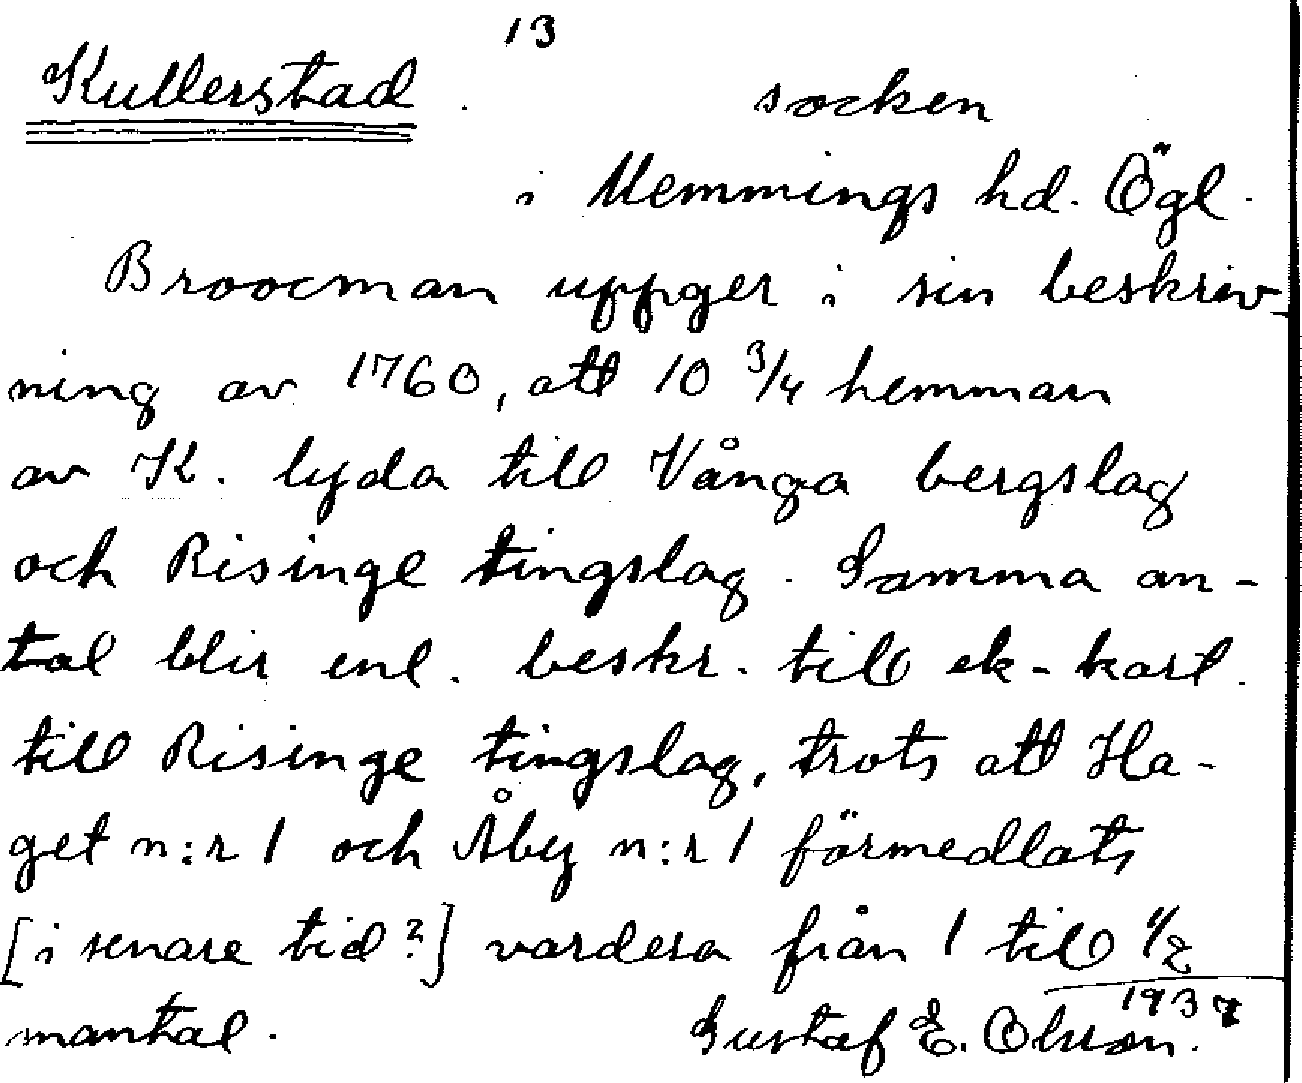 13
Kullerstad socken
i Memmings hd. Ögl.
Broocman uppger i sin beskriv-
ning av 1760, att 10 3/4 hemman
av K. lyda till Vånga bergslag
och Risinge tingslag. Samma an-
tal blir enl. beskr. till ek-kart.
till Risinge tingslag, trots att Ha-
get n:r 1 och Åby n:r 1 förmedlats
[i senare tid?] vardera från 1 till 1/2
mantal. Gustaf E. Olsson. 1937